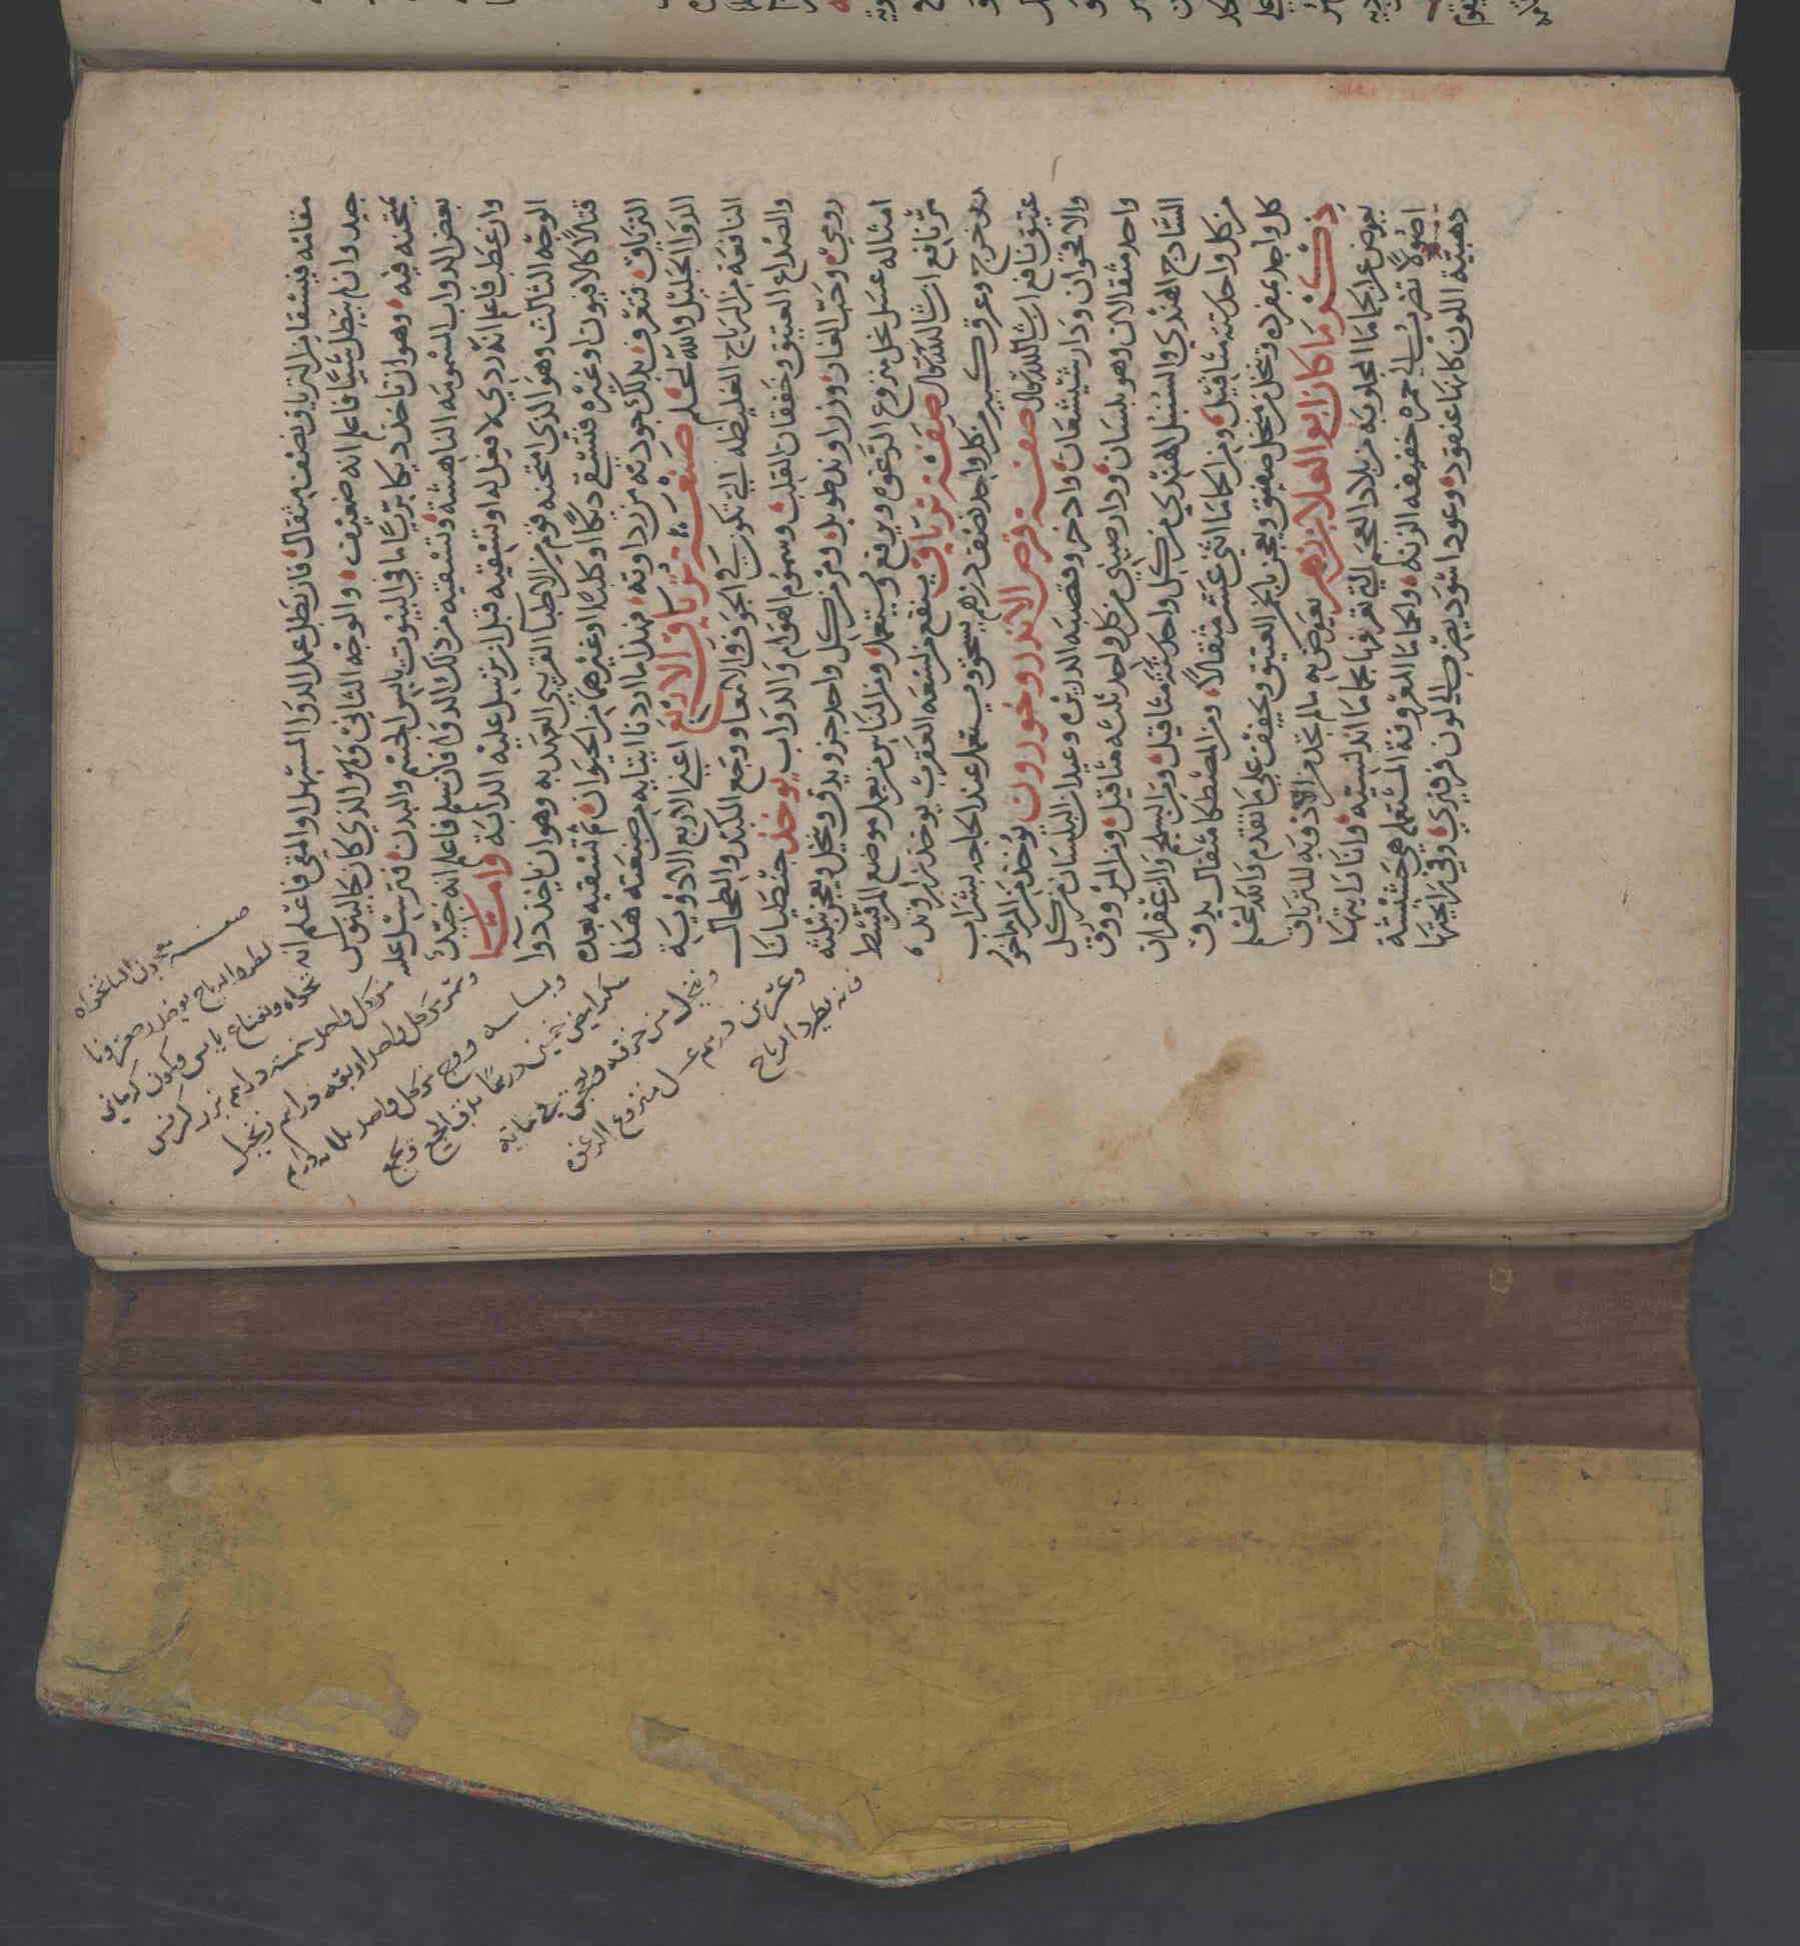 مقائه فيسقا من الترياق نصف مثقال فان بطل عمل الدوا المسهل والمقي فاعلم انه
جيد وان لم يبطل شيئا فاعلم انه ضعيف والوجه الثاني وهو الذي كان جالينوس
يمتحنه فيه وهو ان تاخذ ديكا بريا ما في البيوت يابس الجسم والبدن فترسل عليه
بعض الدواب المسمومه الناهشة وتسقيه من ذلك الدوا فان سلم فاعلم انه جيد
وان عطب فاعلم انه ردي لا فعل له او تسقيه قبل ان ترسل عليه الدابة واما
الوجه الثالث وهو الذي امتحنه قوم من الاطبا القريبي العهد به وهو ان ياخذ دوا
قتالا كالافيون او غيره فتسقي ديكا او كلبا او غيرهما من الحيوان ثم تسقيه بعده
الترياق فتعرف بذلك جودته من رداوته فهذا ما اردنا اثباته من صنعته هذا
الدوا الجليل والله اعلم صنعة ترياق الاربع اعني الاربع الادوية
النافعة من الرياح الغليظه التي تكون في الجوف والامعا ووجع الكبد والطحال
والصداع العتيق وخفقان القلب وسموم الهوام والدواب يوخذ جنطيانا
رومي وحب الغار وزراوند طويل ومر من كل واحد جزو يدق وينخل ويعجن بثلثه
امثاله عسل نحل منزوع الرغوه ويرفع ويستعمل ومن الناس من يعمل موضع المر قسط
مر نافع ان شا الله تعالى صفة ترياق ينفع من لسعه العقرب يوخذ زراوند
مدحرج وعرق كبير من كل واحد نصف درهم يسحق ويستعمل عند الحاجه بشراب
عتيق نافع ان شا الله تعالى صفة قرص الاندروخورون يوخذ من المرماخور
والاقحوان ودارشيشعان واذخر وقصبه الدريره وعيدان البلسان من كل
واحد مثقالان وهو بلسان ودار صيني من كل واحد ثلثه مثاقيل ومن المر وورق
السادج الهندي والسنبل الهندي من كل واحد سته مثاقيل ومن السليخ والزعفران
من كل واحد سته مثاقيل ومن الحماما اثني عشر مثقالا ومن المصطكا مثقال يدق
كل واحد بمفرده وينخل من منخل صفيق ويعجن بالخمر العتيق ويجفف على ما تقدم والله اعلم
ذكر ما كان ابو العلا بن زهر يعوض به ما لم يجد من الادويه للترياق
يعوض عن الحماما المجلوبه من بلاد العجم التي تعرفها بحماما اندلسيه وانا رايتها
اصولا تضرب الى حمره خفيفه الزنه والحماما المعروفة المستعمل هي حشيشة
ذهبية اللون كانها عنقود وعود اسود يضرب الى لون فرفيري وفي رايحتها
صفة
ونعناع يابس وكمون كرماني
من كل واحد خمسه دراهم بزر كرفس
من كل واحد اربعه دراهم زنجبيل
من كل واحد
خمسين درهما يدق الجميع ويجمع
وعشرين درهم عسل منزوع الرغوه
فانه يطرد الرياح